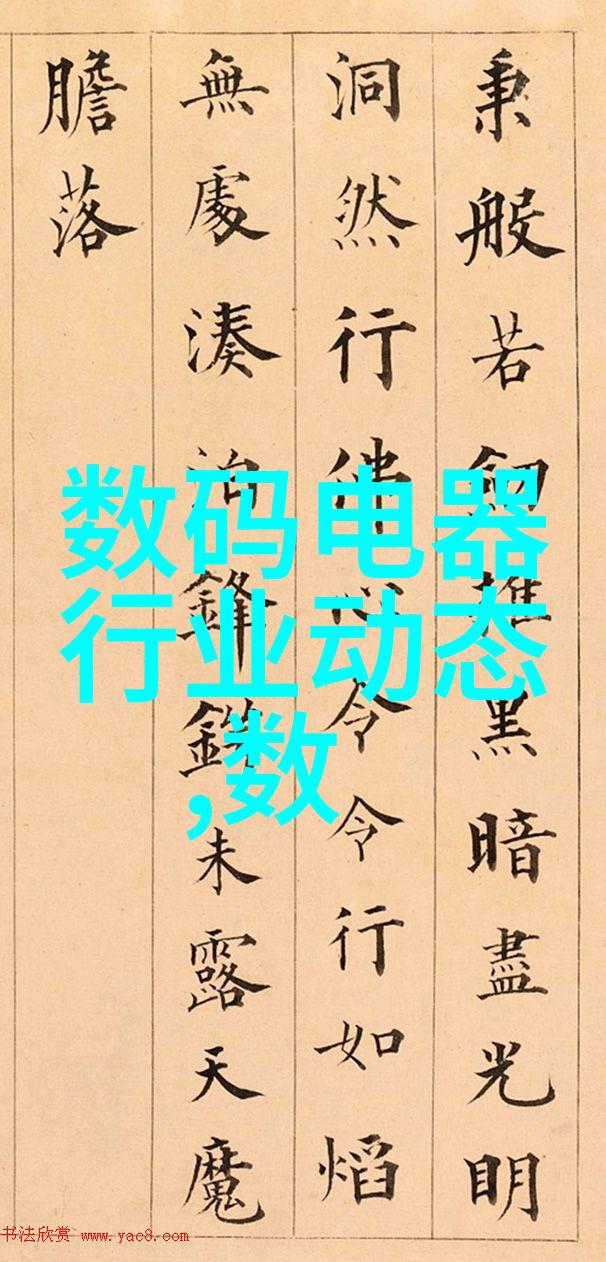 秉般若摧黑暗盡光明
洞然行佛心令令行如熖
無處湊泊鋒鋩未露天魔
膽落
数码电器
行业动态
,数
书法欣赏 www.yac8.com